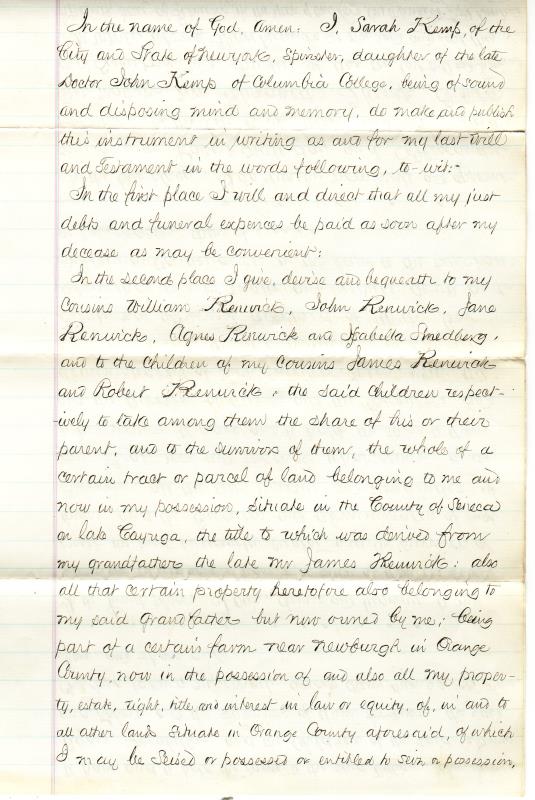 In the name of God, Amen: I, Sarah Kemp, of the
City and State of Newyork, Spinster, daughter of the late
Doctor John Kemp of Columbia College, being of sound
and disposing mind and memory, do make and publish
this instrument in writing as and for my last Will
and Testament in the words following, to-wit:-
In the first place I will and direct that all my just
debts and funeral expences be paid as soon after my
decease as may be convenient:
In the second place I give, devise and bequeath to my
Cousins William Renwick, John Renwick, Jane
Renwick, Agnes Renwick and Isabella Smedberg,
and to the children of my Cousins James Renwick
and Robert Renwick, the said children respect-
ively to take among them the share of his or their
parent, and to the survivors of them, the whole of a
certain tract or parcel of land belonging to me and
now in my possession, situate in the County of Seneca
on lake Cayuga, the title to which was derived from
my grandfather the late Mr James Renwick: also
all that certain property heretofore also belonging to
my said grandfather but now owned by me; being
part of a certain farm near Newburgh in Orange
County, now in the possession of and also all my proper-
ty, estate, right, title, and interest in law or equity, of, in and to
all other lands situate in Orange County aforesaid, of which
I may be seised or possessed or entitled to seizn or possession,